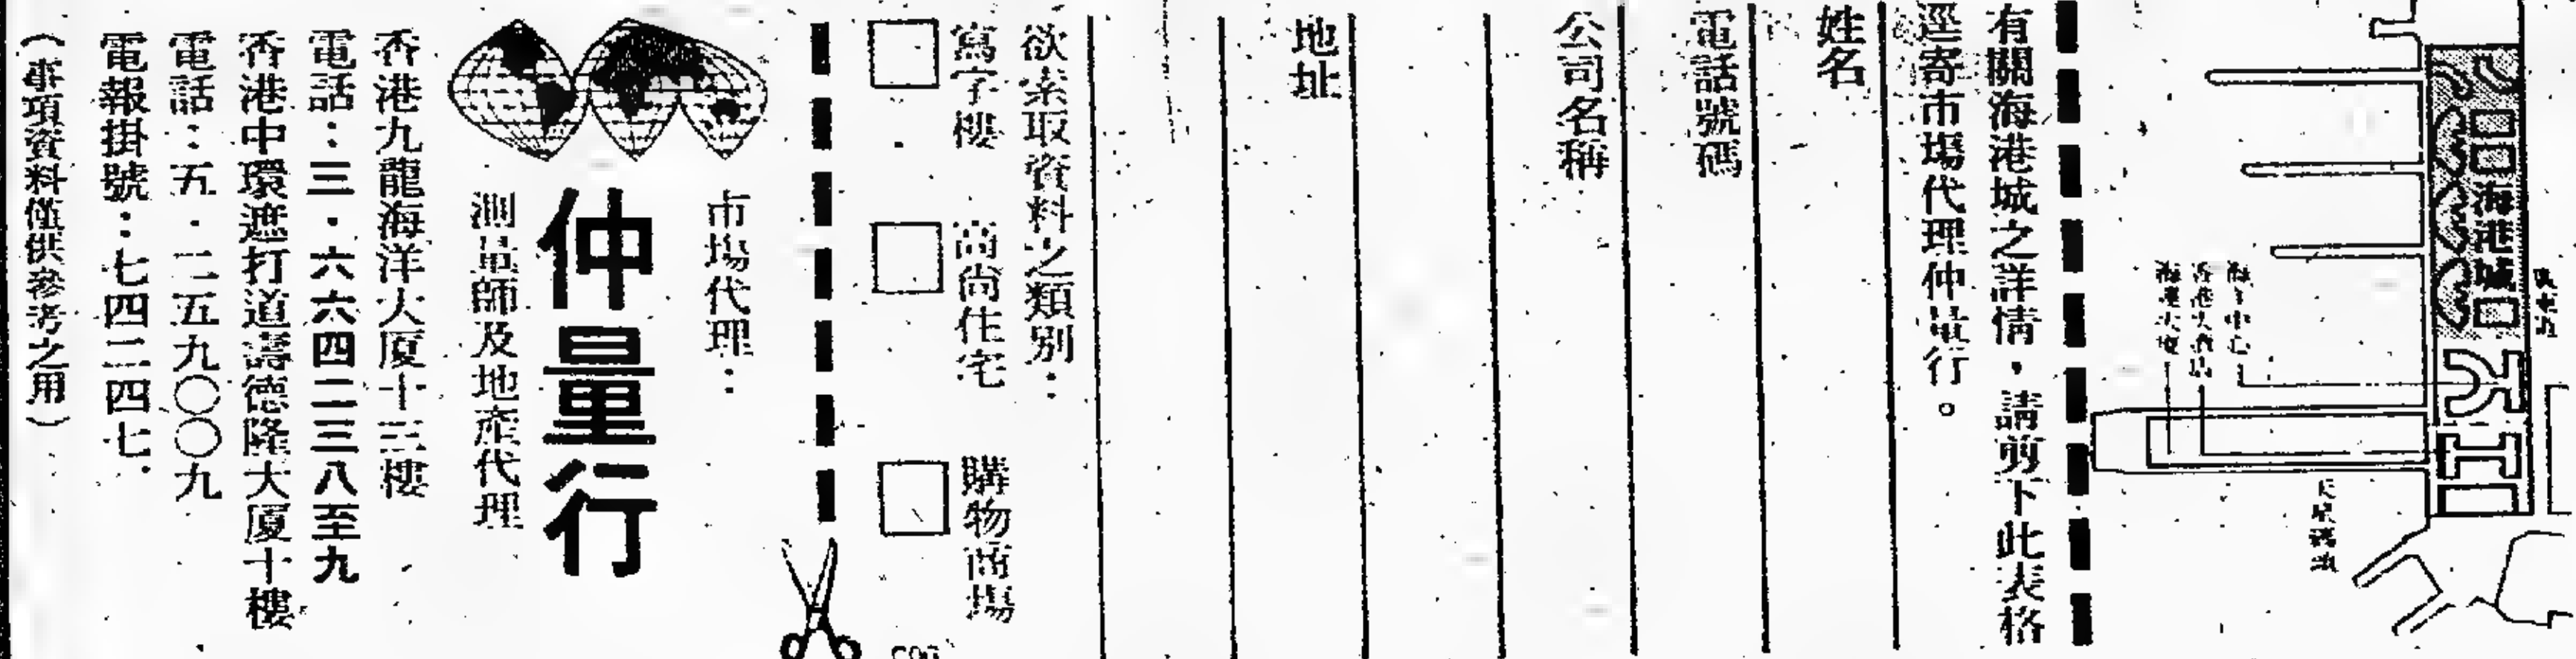 海港城
海洋中心
香港大酒店
海運大廈
天星碼頭
有關海港城之詳情，請剪下此表格
逕寄市場代理仲量行。
姓名
電話號碼
公司名稱
地址
欲索取資料之類別：
寫字樓
高尚住宅
購物商場
市場代理：
仲量行
測量師及地產代理
香港九龍海洋大廈十三樓
電話：三·六六四二三八至九
香港中環遮打道壽德隆大廈十樓
電話：五·二五九〇〇九
電報掛號：七四二四七·
（事項資料僅供參考之用）